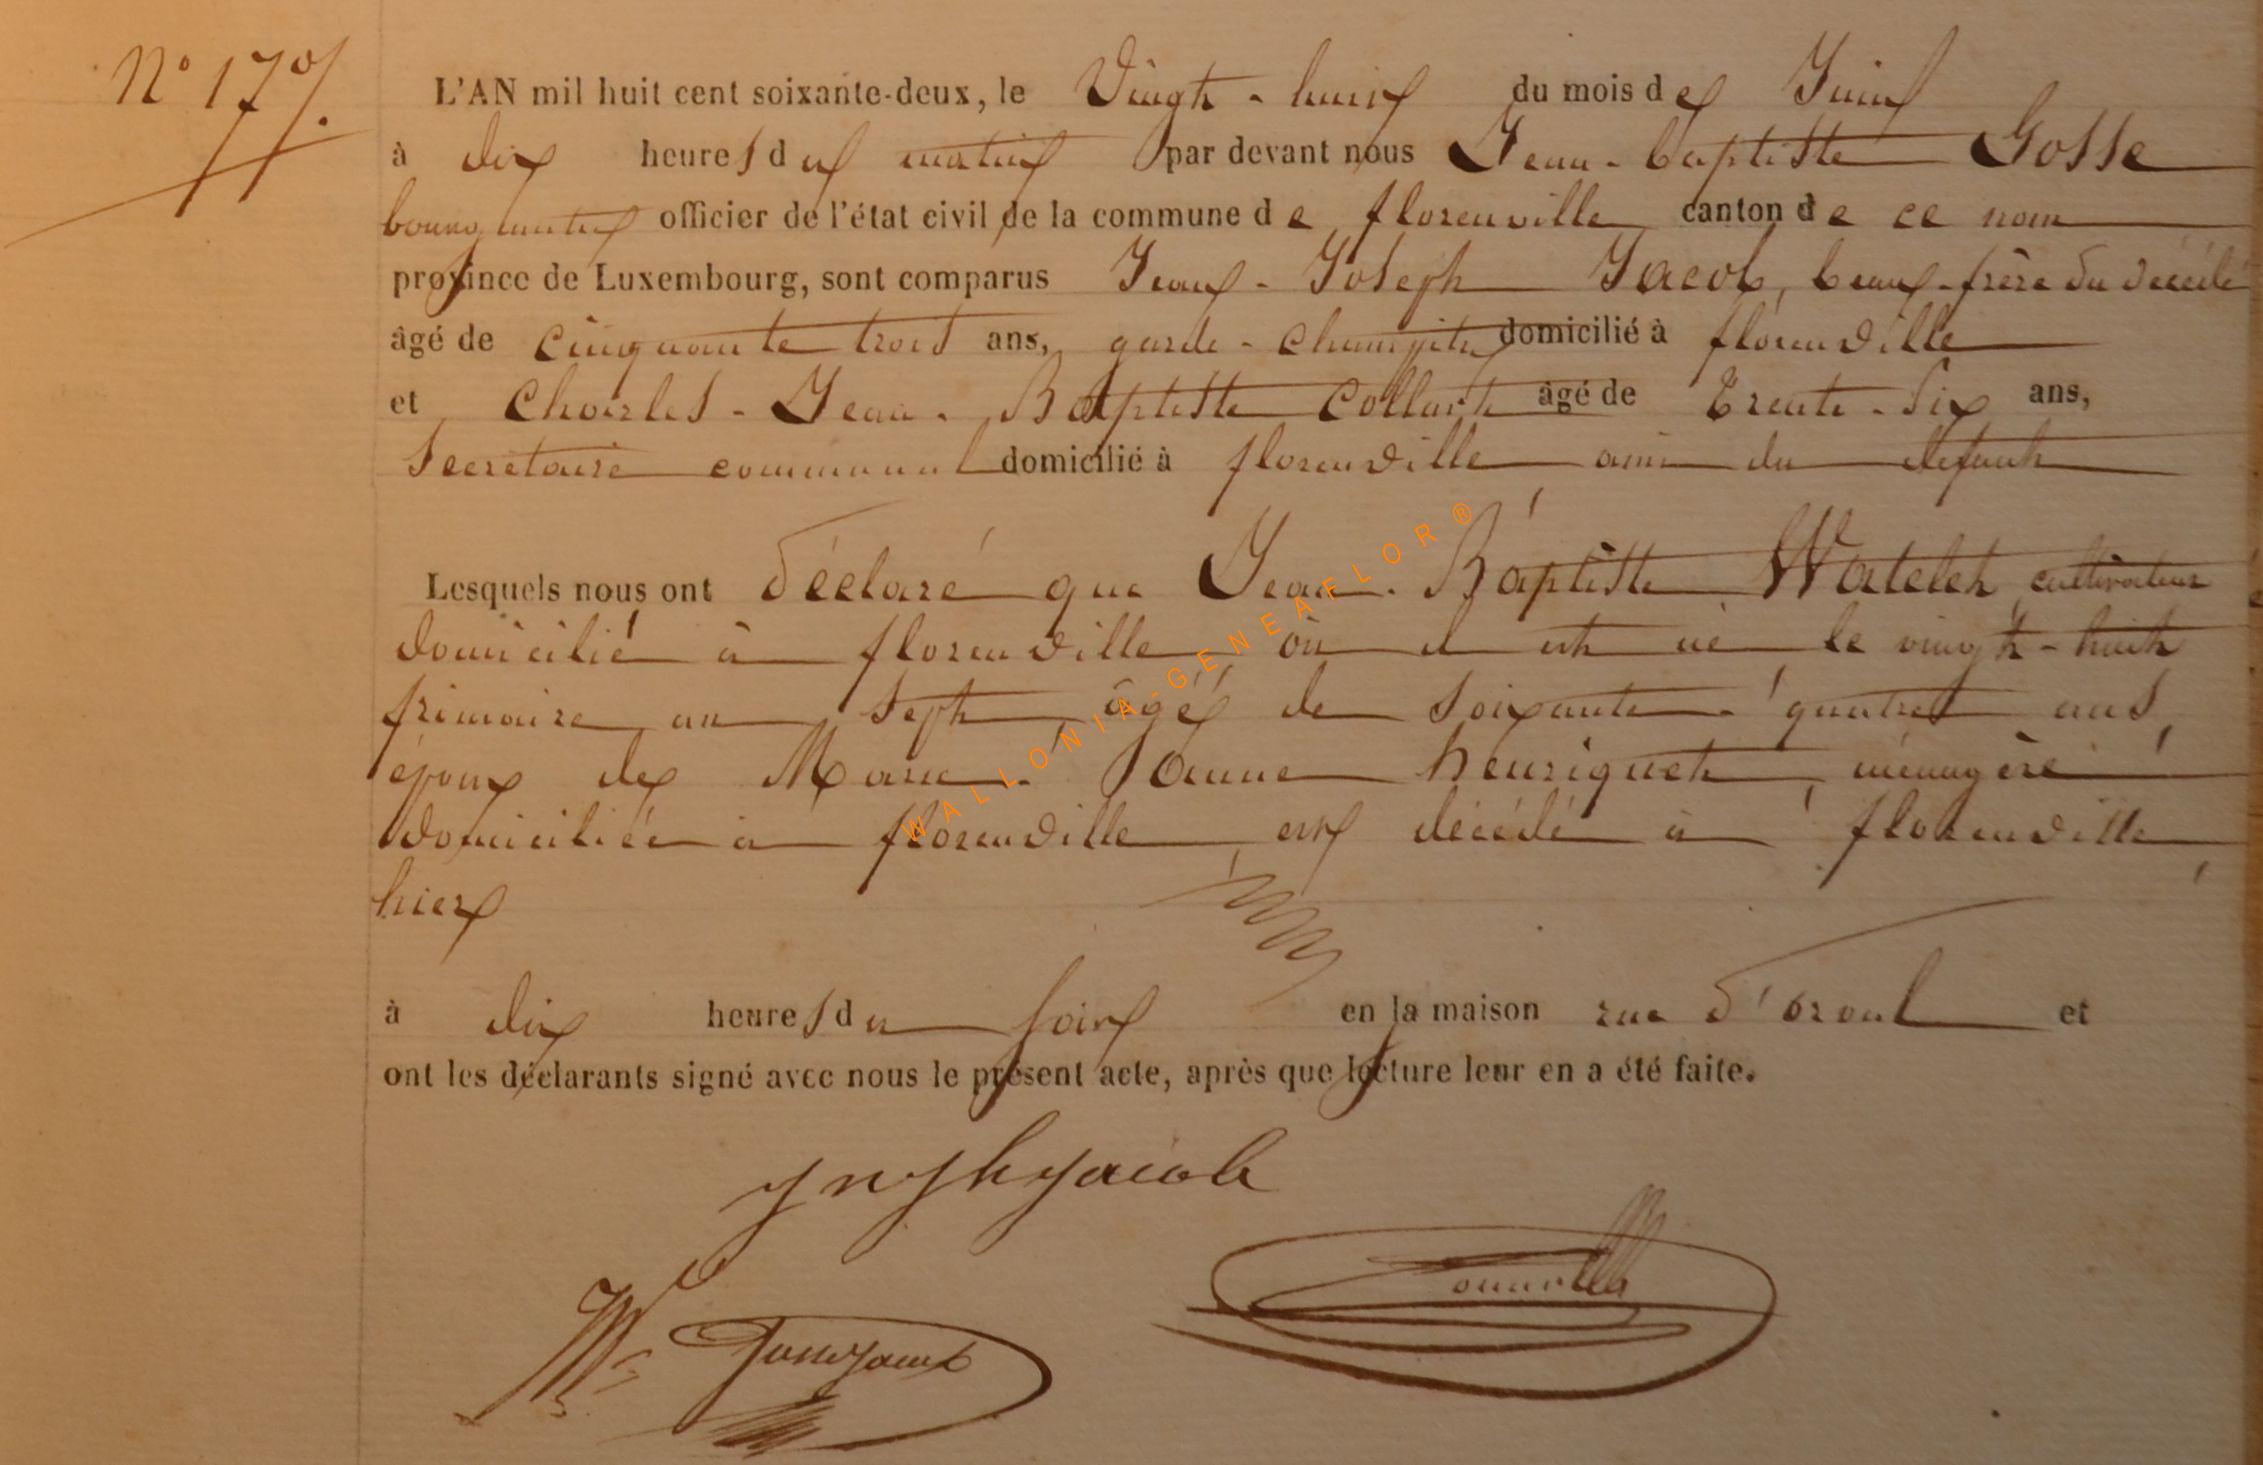 N° 17
L'AN mil huit cent soixante-deux, le Vingt-huit du mois de Juin
à dix heures du matin par devant nous Jean-baptiste Gosse
bourgmestre officier de l'état civil de la commune de florenville canton de ce nom
province de Luxembourg, sont comparus Jean-Joseph Jacob, beau-frère du décédé
âgé de cinquante trois ans, garde-champêtre domicilié à florenville
et Charles-Jean-Baptiste Collart âgé de Trente-Six ans,
Secrétaire communal domicilié à florenville ami du défunt
Lesquels nous ont déclaré que Jean-Baptiste Watelet, cultivateur
domicilié à florenville où il est né le vingt-huit
frimaire an Sept, âgé de soixante-quatre ans,
époux de Marie-Jeanne henriquet, ménagère
domiciliée à florenville est décédé à florenville,
hier
à dix heures du soir en la maison rue d'orval et
ont les déclarants signé avec nous le présent acte, après que lecture leur en a été faite.
Jacob
WALLONIA-GENEAFLOR®